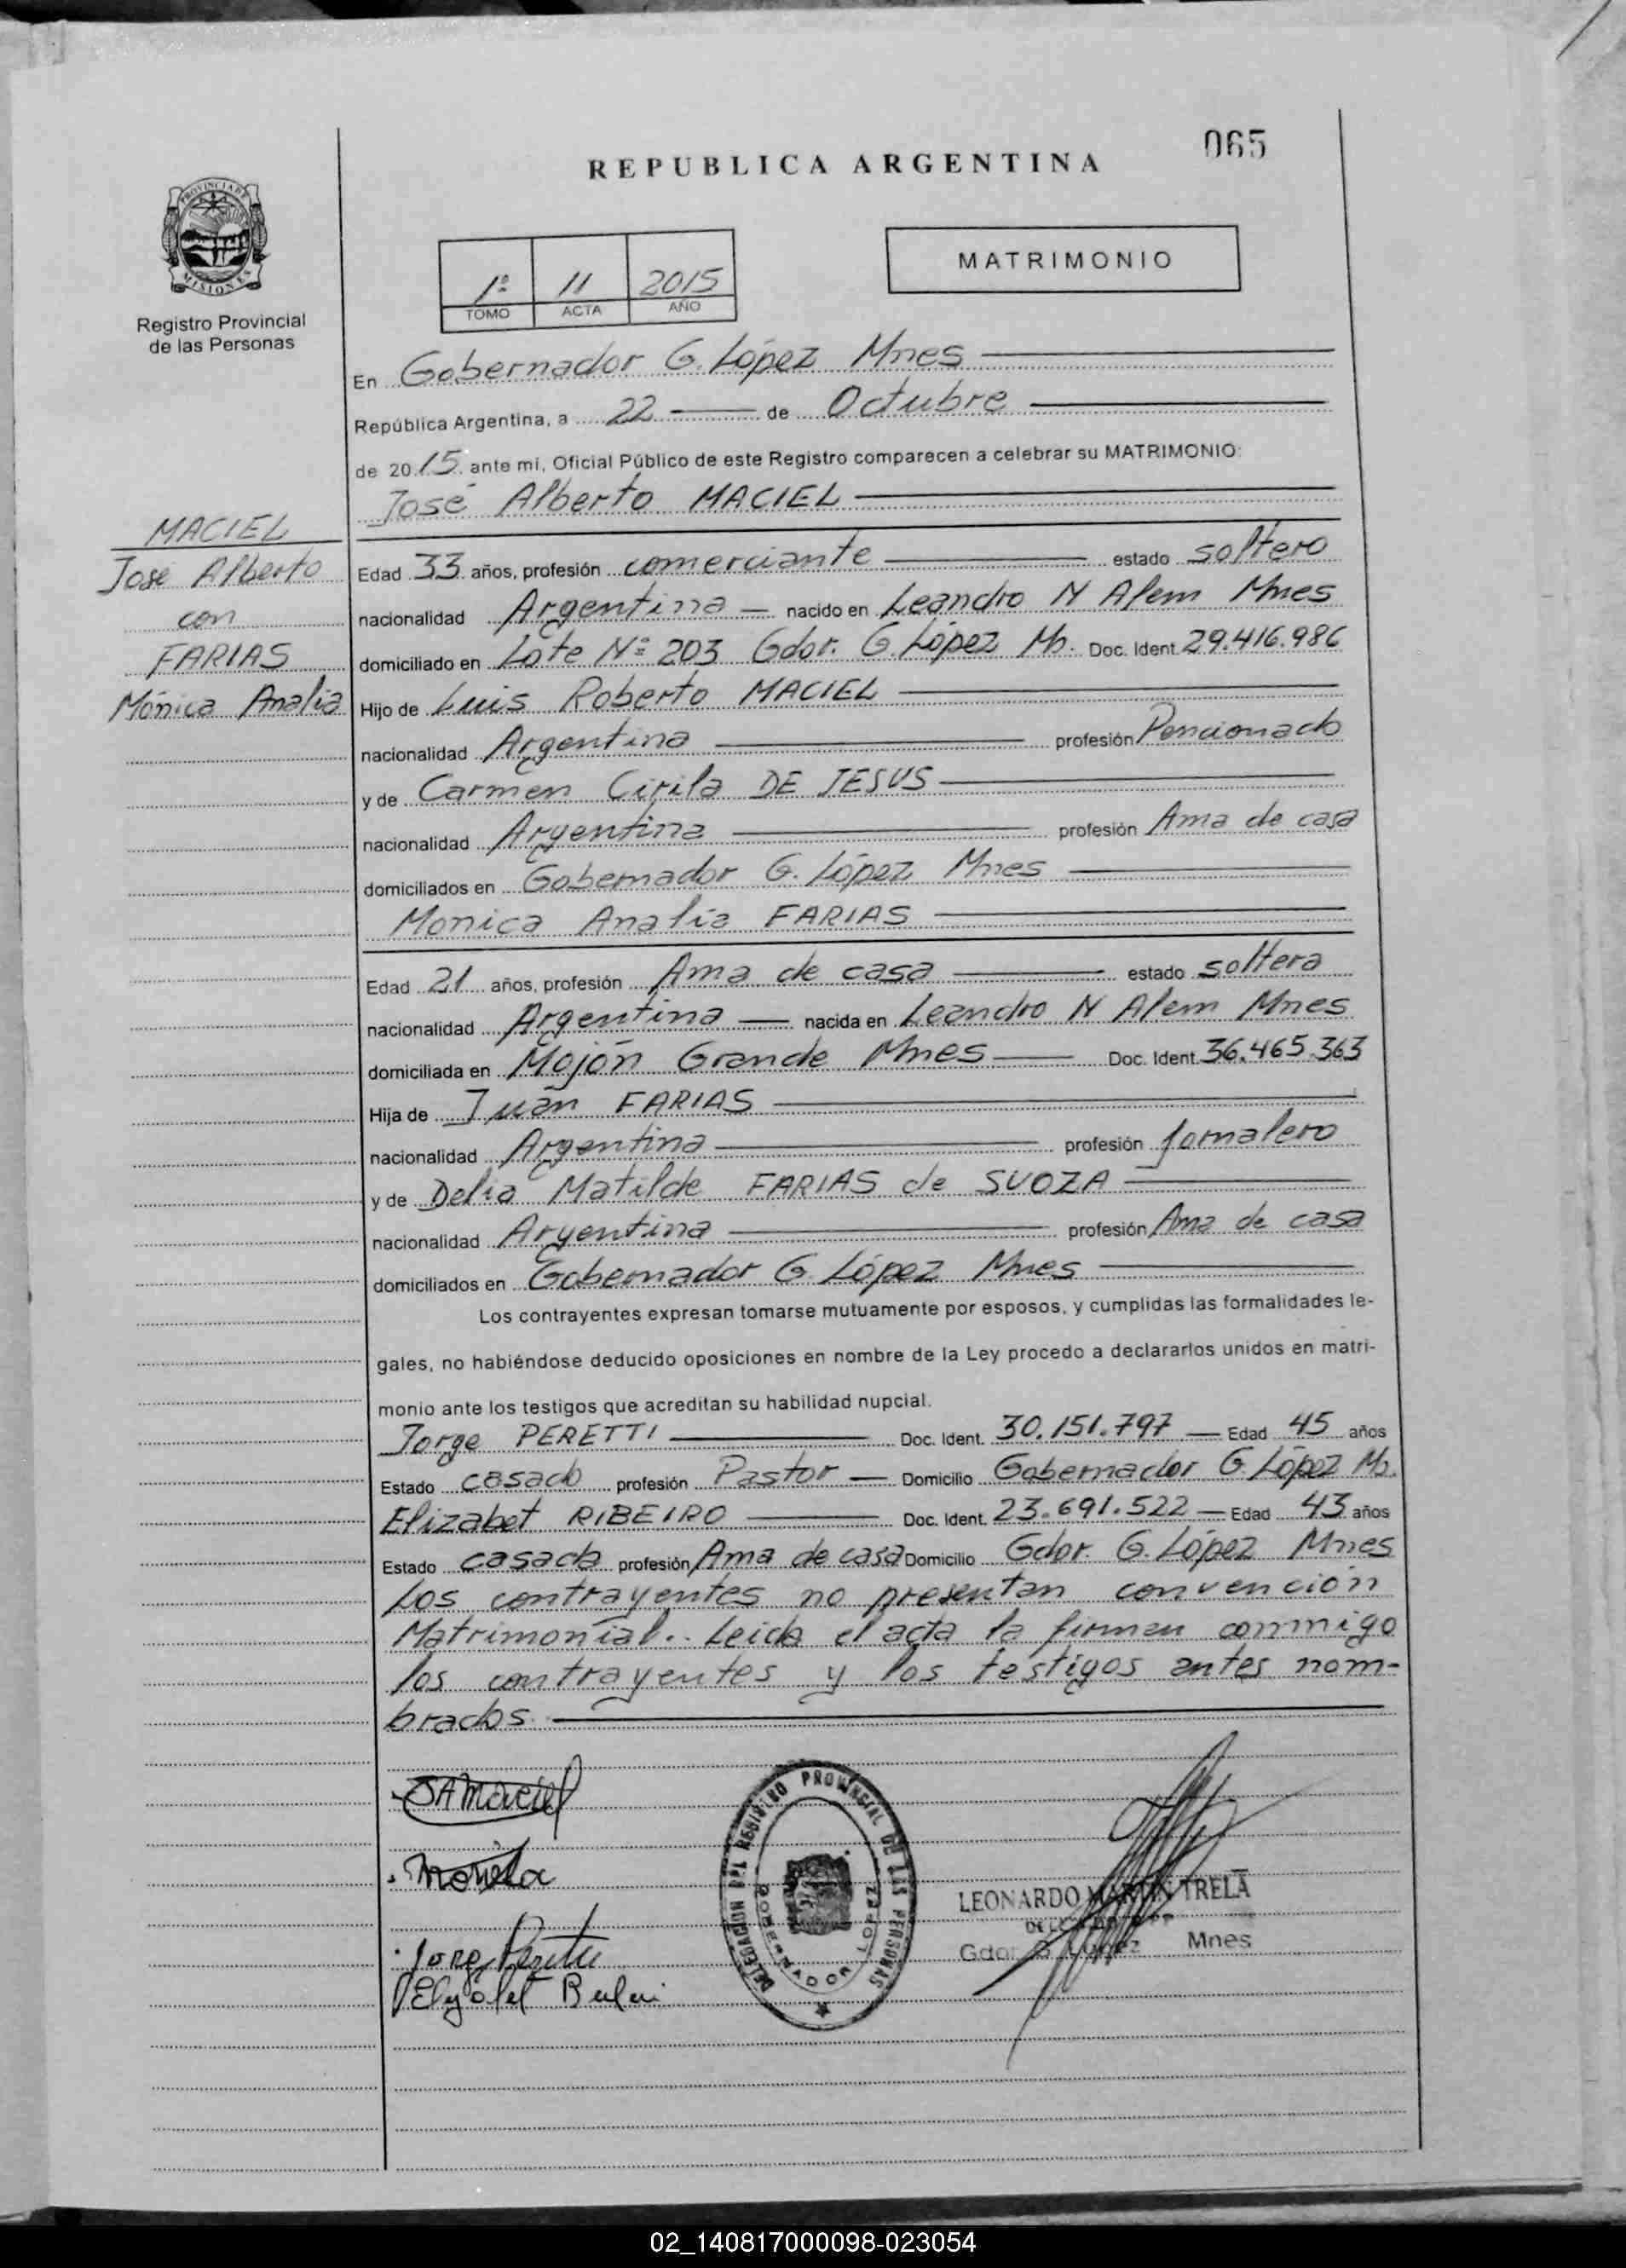 065
REPUBLICA ARGENTINA
PROVINCIA DE
MISIONES
Registro Provincial
de las Personas
1º 11 2015
TOMO ACTA AÑO
MATRIMONIO
En Gobernador G. López Mnes
República Argentina, a 22 de Octubre
de 2015 ante mi, Oficial Público de este Registro comparecen a celebrar su MATRIMONIO:
José Alberto MACIEL
MACIEL
José Alberto
con
FARIAS
Mónica Analia
Edad 33 años, profesión comerciante estado soltero
nacionalidad Argentina nacido en Leandro N Alem Mnes
domiciliado en Lote Nº 203 Gdor. G. López Mn. Doc. Ident. 29.416.986
Hijo de Luis Roberto MACIEL
nacionalidad Argentina profesión Pencionado
y de Carmen Cirila DE JESUS
nacionalidad Argentina profesión Ama de casa
domiciliados en Gobernador G. López Mnes
Monica Analia FARIAS
Edad 21 años, profesión Ama de casa estado soltera
nacionalidad Argentina nacida en Leandro N Alem Mnes
domiciliada en Mojón Grande Mnes Doc. Ident. 36.465.363
Hija de Juan FARIAS
nacionalidad Argentina profesión Jornalero
y de Delia Matilde FARIAS de SUOZA
nacionalidad Argentina profesión Ama de casa
domiciliados en Gobernador G López Mnes
Los contrayentes expresan tomarse mutuamente por esposos, y cumplidas las formalidades le-
gales, no habiéndose deducido oposiciones en nombre de la Ley procedo a declararlos unidos en matri-
monio ante los testigos que acreditan su habilidad nupcial.
Jorge PERETTI Doc. Ident. 30.151.797 Edad 45 años
Estado casado profesión Pastor Domicilio Gobernador G. López Mn.
Elizabet RIBEIRO Doc. Ident. 23.691.522 Edad 43 años
Estado casada profesión Ama de casa Domicilio Gdor. G. López Mnes
Los contrayentes no presentan convención
Matrimonial.. Leida el acta la firman conmigo
los contrayentes y los testigos antes nom-
brados.
JAMaciel
Monica
Jorge
DELEGACION DEL REGISTRO PROVINCIAL DE LAS PERSONAS
GOBERNADOR LOPEZ
LEONARDO MARTIN TRELA
Gdor. G. López Mnes
02_140817000098-023054